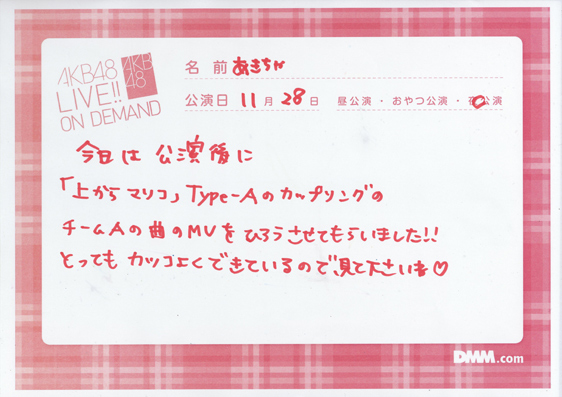 AKB48
LIVE!!
ON DEMAND
AKB
48
名前 あきちゃ
公演日 11月28日 昼公演・おやつ公演・夜公演
今日は 公演後に
「上からマリコ」Type-Aのカップリングの
チームAの曲のMVをひろうさせてもらいました!!
とっても カッコよくできているので見て下さいね♡
DMM.com